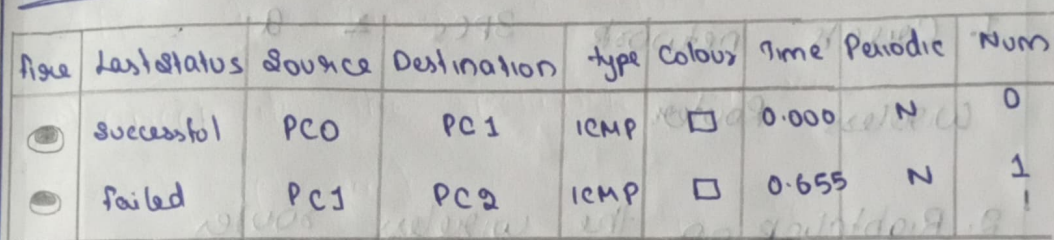 fire Last status Source Destination type Colour Time Periodic Num
successful PC0 PC1 ICMP 0.000 N 0
failed PC1 PC2 ICMP 0.655 N 1